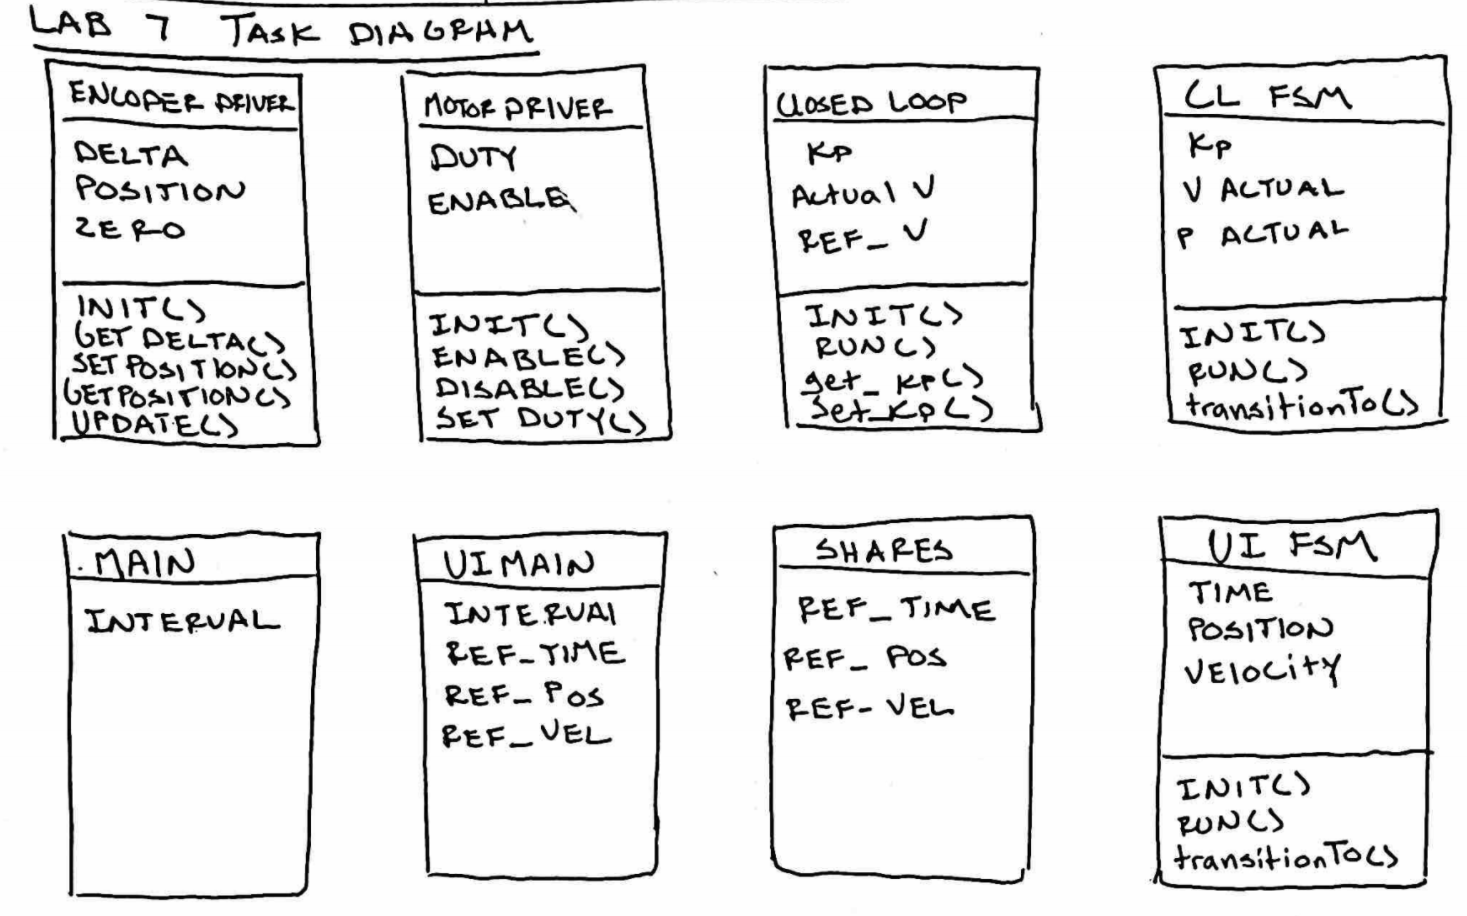 LAB 7 TASK DIAGRAM
ENCODER DRIVER
DELTA
POSITION
ZERO
INIT()
GET DELTA()
SET POSITION()
GETPOSITION()
UPDATE()
MOTOR DRIVER
DUTY
ENABLE
INIT()
ENABLE()
DISABLE()
SET DUTY()
CLOSED LOOP
KP
Actual V
REF_ V
INIT()
RUN()
get_KP()
Set_KP()
CL FSM
KP
V ACTUAL
P ACTUAL
INIT()
RUN()
transitionTo()
MAIN
INTERVAL
UI MAIN
INTERVAl
REF_TIME
REF_ POS
REF_ VEL
SHARES
REF_ TIME
REF_ POS
REF_ VEL
UI FSM
TIME
POSITION
VELOCITY
INIT()
RUN()
transitionTo()